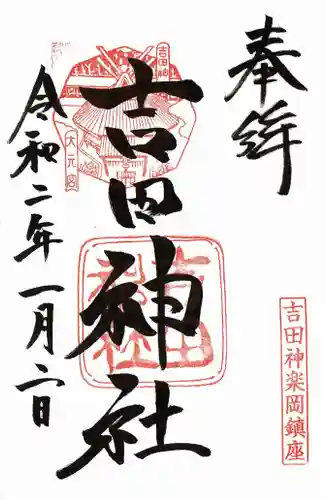 奉拝
吉田神楽岡鎮座
吉田神社
吉田神社
大元宮
令和二年一月二日